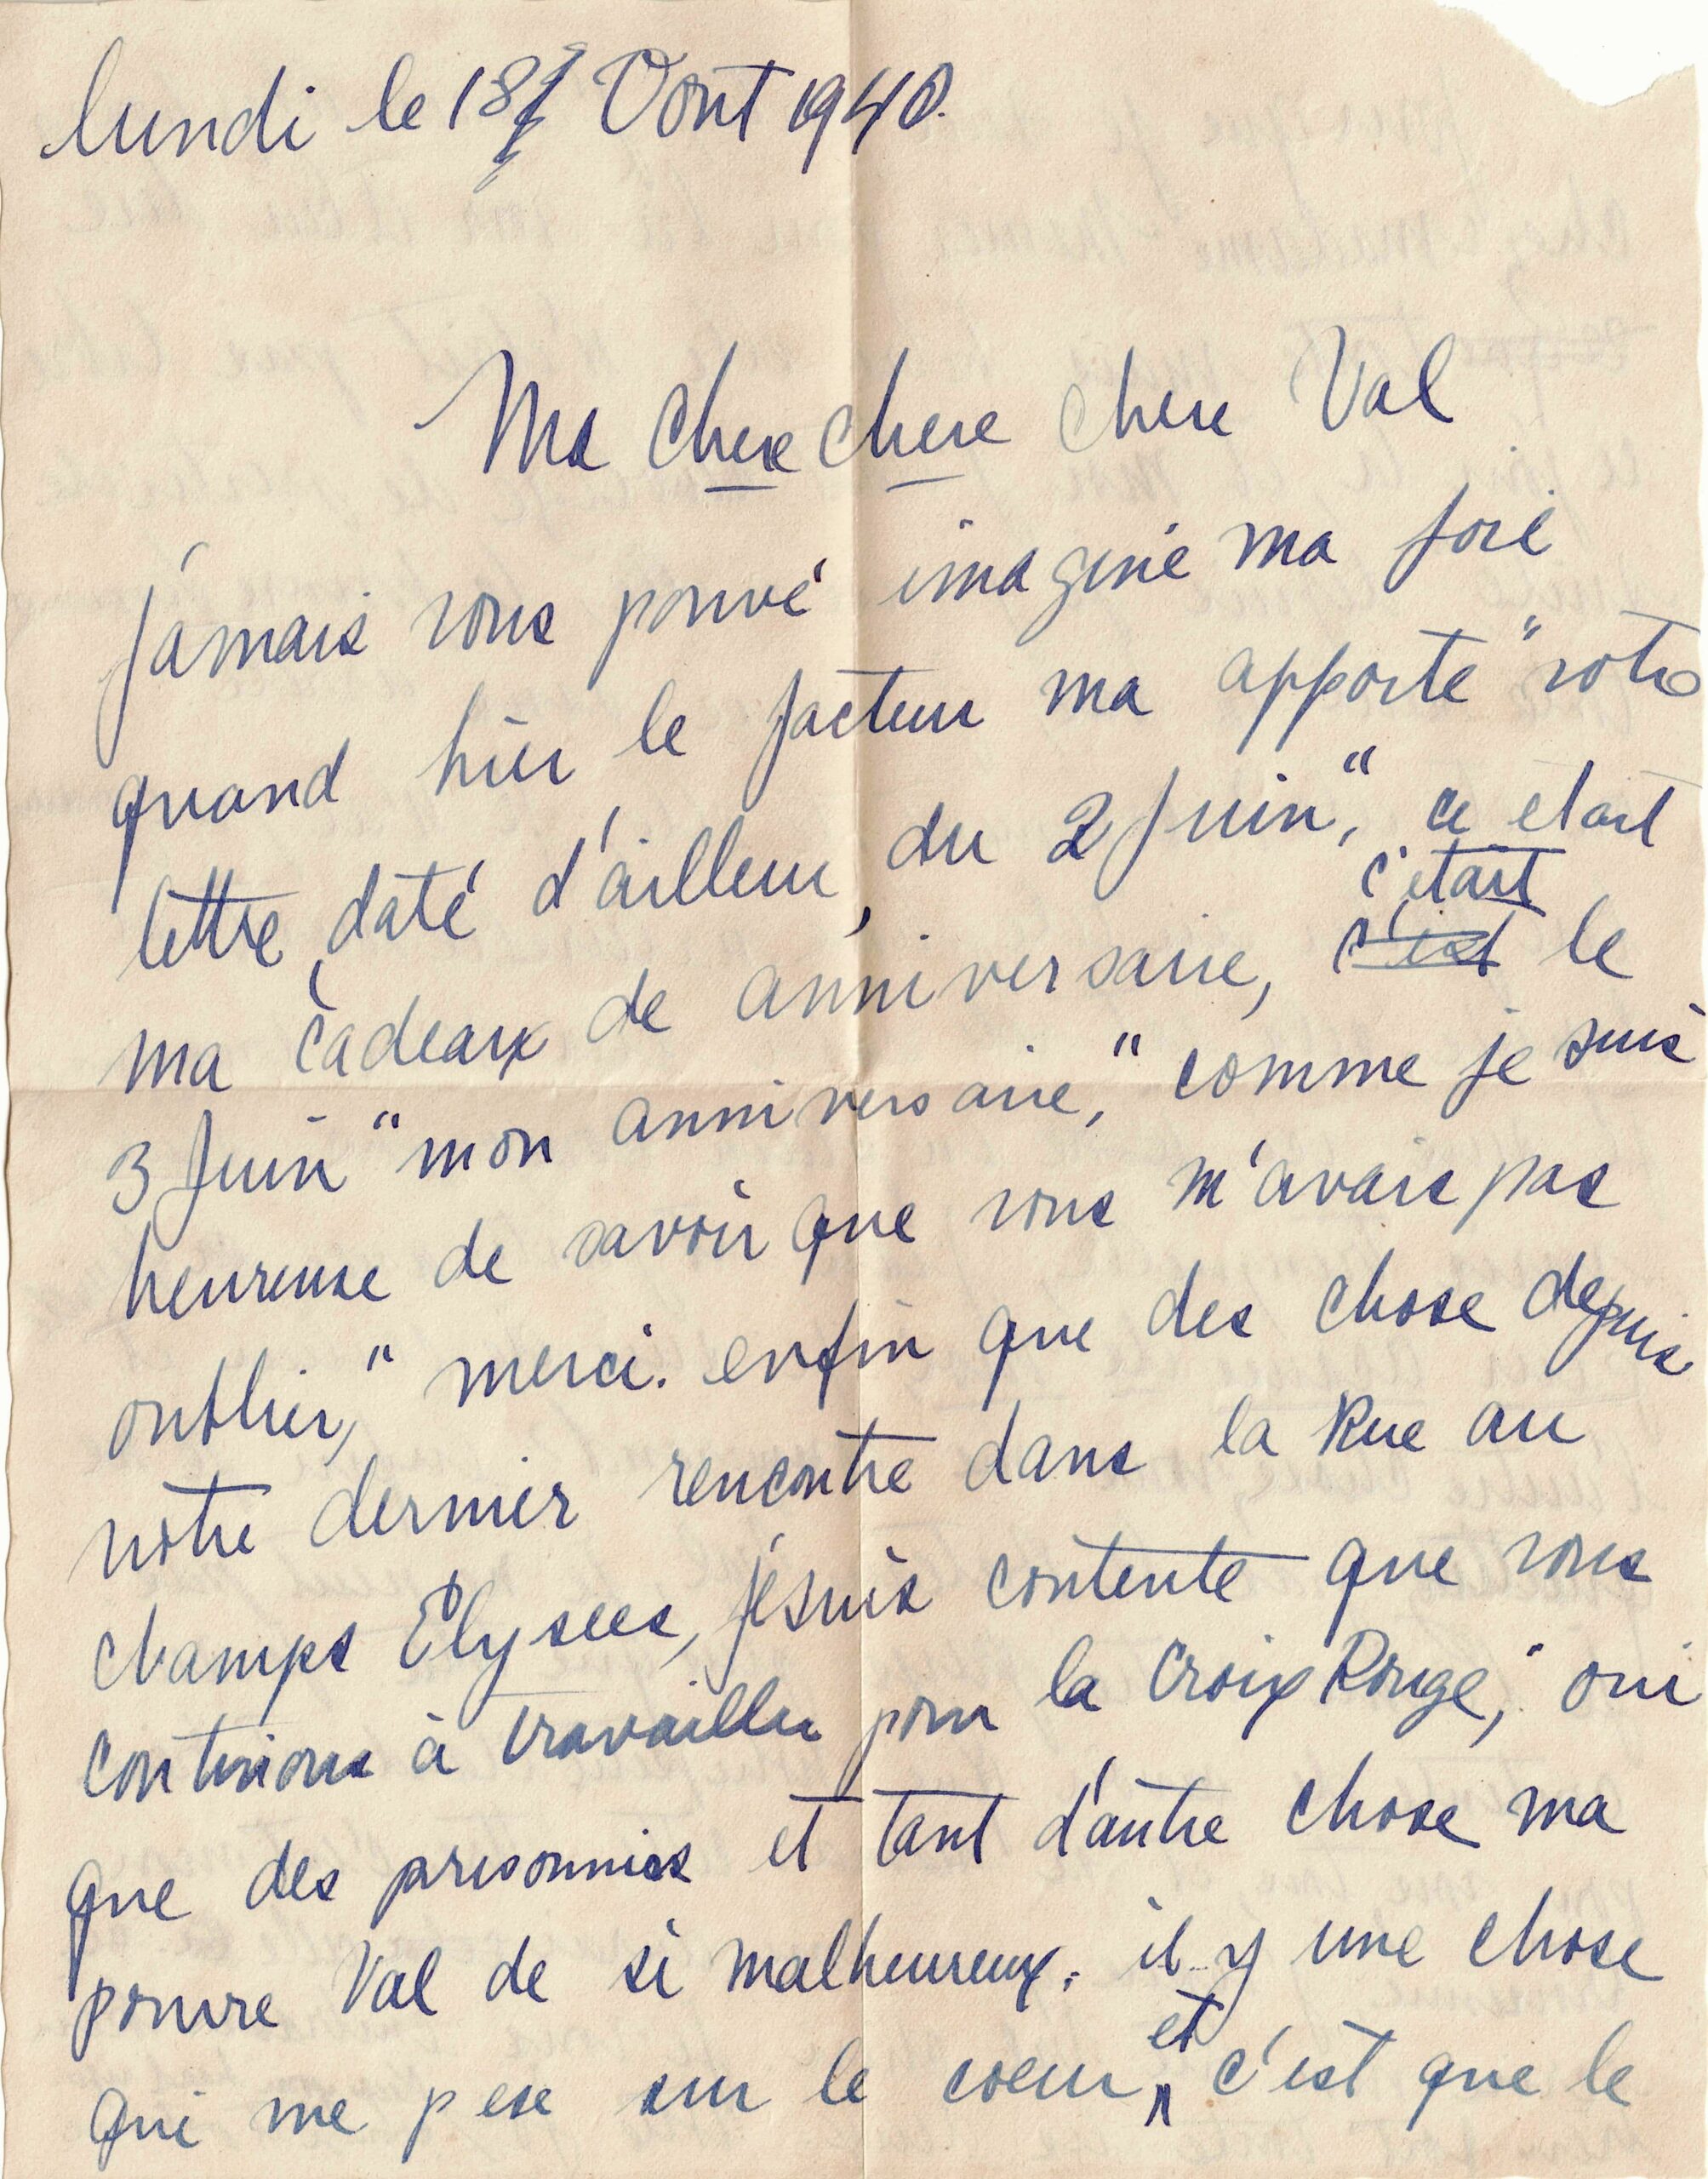 lundi le 18 Août 1940.
Ma chere chere chere Val
jamais vous pouvé imaginé ma joie
quand hier le facteur ma apporté "votre
lettre, daté d'ailleur, du 2 Juin", ce etait
ma cadeaux de anniversaire, c'est c'etait le
3 Juin "mon anniversaire," comme je suis
heureuse de savoir que vous m'avais pas
oublier," merci. enfin que des chose depuis
notre dernier rencontre dans la Rue au
champs Elysees, je suis contente que vous
continous à travailler pour la Croix Rouge," oui
que des prisonnies et tant d'autre chose ma
pouvre Val de si malheureux. il y une chose
qui me pese sur le coeur, et c'est que le